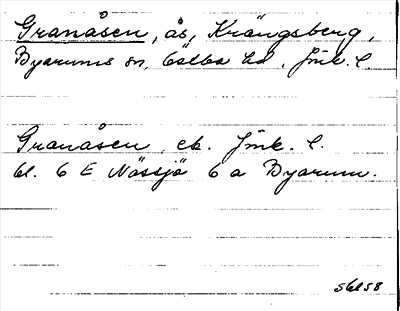 Granåsen, ås, Krängsberg,
Byarums sn, Östbo hd. Jönk. l.
Granåsen, ek. Jönk. l.
bl. 6 E Nässjö 6 a Byarum.